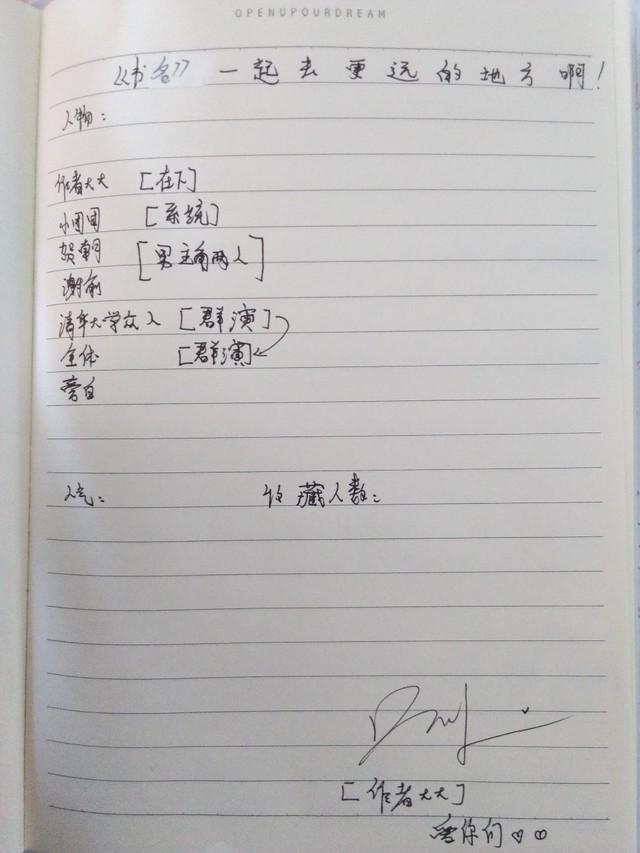 OPENUPOURDREAM
《书名》 一起去更远的地方啊!
人物:
作者大大 [在下]
小团团 [系统]
贺朝 [男主角两人]
谢俞
清华大学众人 [群演]
全体 [群演]
旁白
人气: 收藏人数:
[作者大大]
爱你们♡♡